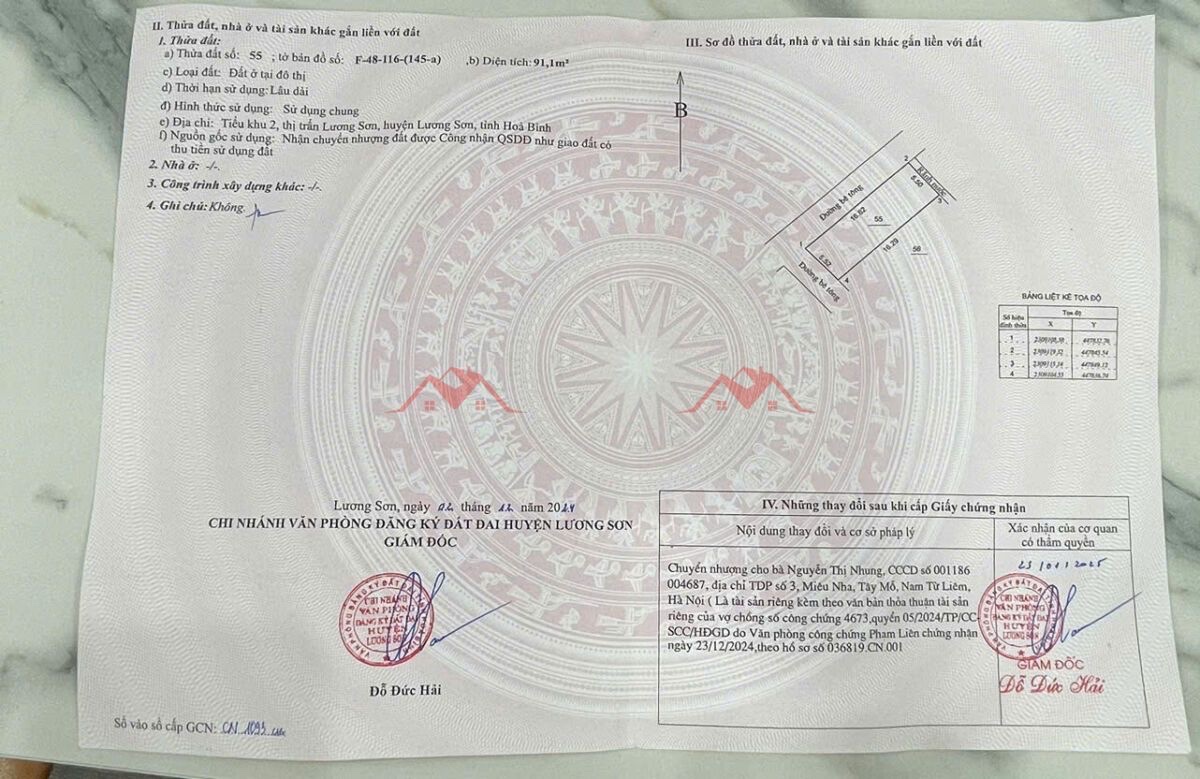 II. Thửa đất, nhà ở và tài sản khác gắn liền với đất
1. Thửa đất:
a) Thửa đất số: 55 ; tờ bản đồ số: F-48-116-(145-a) ,b) Diện tích: 91,1m²
c) Loại đất: Đất ở tại đô thị
d) Thời hạn sử dụng: Lâu dài
đ) Hình thức sử dụng: Sử dụng chung
e) Địa chỉ: Tiểu khu 2, thị trấn Lương Sơn, huyện Lương Sơn, tỉnh Hoà Bình
f) Nguồn gốc sử dụng: Nhận chuyển nhượng đất được Công nhận QSDĐ như giao đất có
thu tiền sử dụng đất
2. Nhà ở: -/-.
3. Công trình xây dựng khác: -/-.
4. Ghi chú: Không.
III. Sơ đồ thửa đất, nhà ở và tài sản khác gắn liền với đất
B
2
Kênh nước
6.50
3
Đường bê tông
16.82
55
1
5.52
16.29
56
4
Đường bê tông
BẢNG LIỆT KÊ TỌA ĐỘ
Số hiệu đỉnh thửa
Tọa độ
X Y
1
2
3
4
Lương Sơn, ngày 02 tháng 12 năm 2024
CHI NHÁNH VĂN PHÒNG ĐĂNG KÝ ĐẤT ĐAI HUYỆN LƯƠNG SƠN
GIÁM ĐỐC
CHI NHÁNH
VĂN PHÒNG
ĐĂNG KÝ ĐẤT ĐAI
HUYỆN
LƯƠNG SƠN
Đỗ Đức Hải
Số vào sổ cấp GCN: CN 1093
IV. Những thay đổi sau khi cấp Giấy chứng nhận
Nội dung thay đổi và cơ sở pháp lý
Xác nhận của cơ quan
có thẩm quyền
Chuyển nhượng cho bà Nguyễn Thị Nhung, CCCD số 001186
004687, địa chỉ TDP số 3, Miêu Nha, Tây Mỗ, Nam Từ Liêm,
Hà Nội ( Là tài sản riêng kèm theo văn bản thỏa thuận tài sản
riêng của vợ chồng số công chứng 4673,quyển 05/2024/TP/CC-
SCC/HĐGD do Văn phòng công chứng Phạm Liên chứng nhận
ngày 23/12/2024,theo hồ sơ số 036819.CN.001
23/01/2025
CHI NHÁNH
VĂN PHÒNG
ĐĂNG KÝ ĐẤT ĐAI
HUYỆN
LƯƠNG SƠN
GIÁM ĐỐC
Đỗ Đức Hải